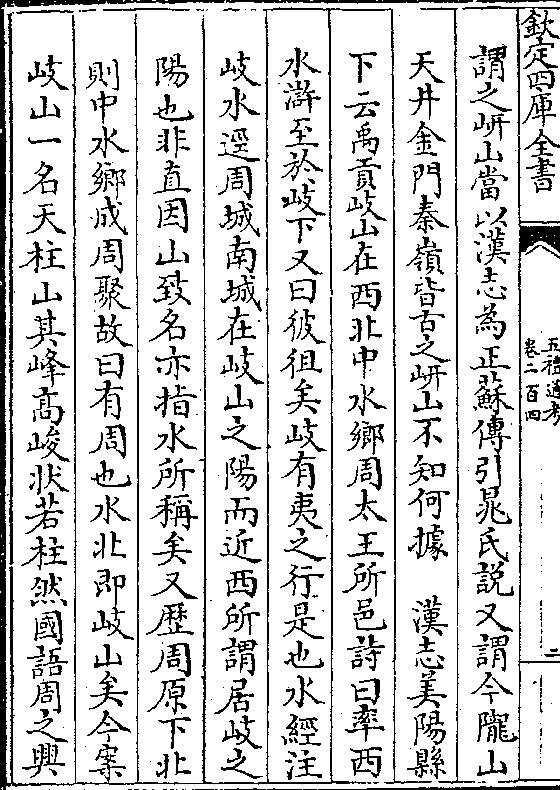 欽定四庫全書
五禮通考
卷二百四
二
謂之岍山當以漢志為正蘇傳引晁氏説又謂今隴山
天井金門秦嶺皆古之岍山不知何據　漢志美陽縣
下云禹貢岐山在西北中水鄉周太王所邑詩曰率西
水滸至於岐下又曰彼徂矣岐有夷之行是也水經注
岐水逕周城南城在岐山之陽而近西所謂居岐之
陽也非直因山致名亦指水所稱矣又歴周原下北
則中水鄉成周聚故曰有周也水北即岐山矣今案
岐山一名天柱山其峰髙峻狀若柱然國語周之興